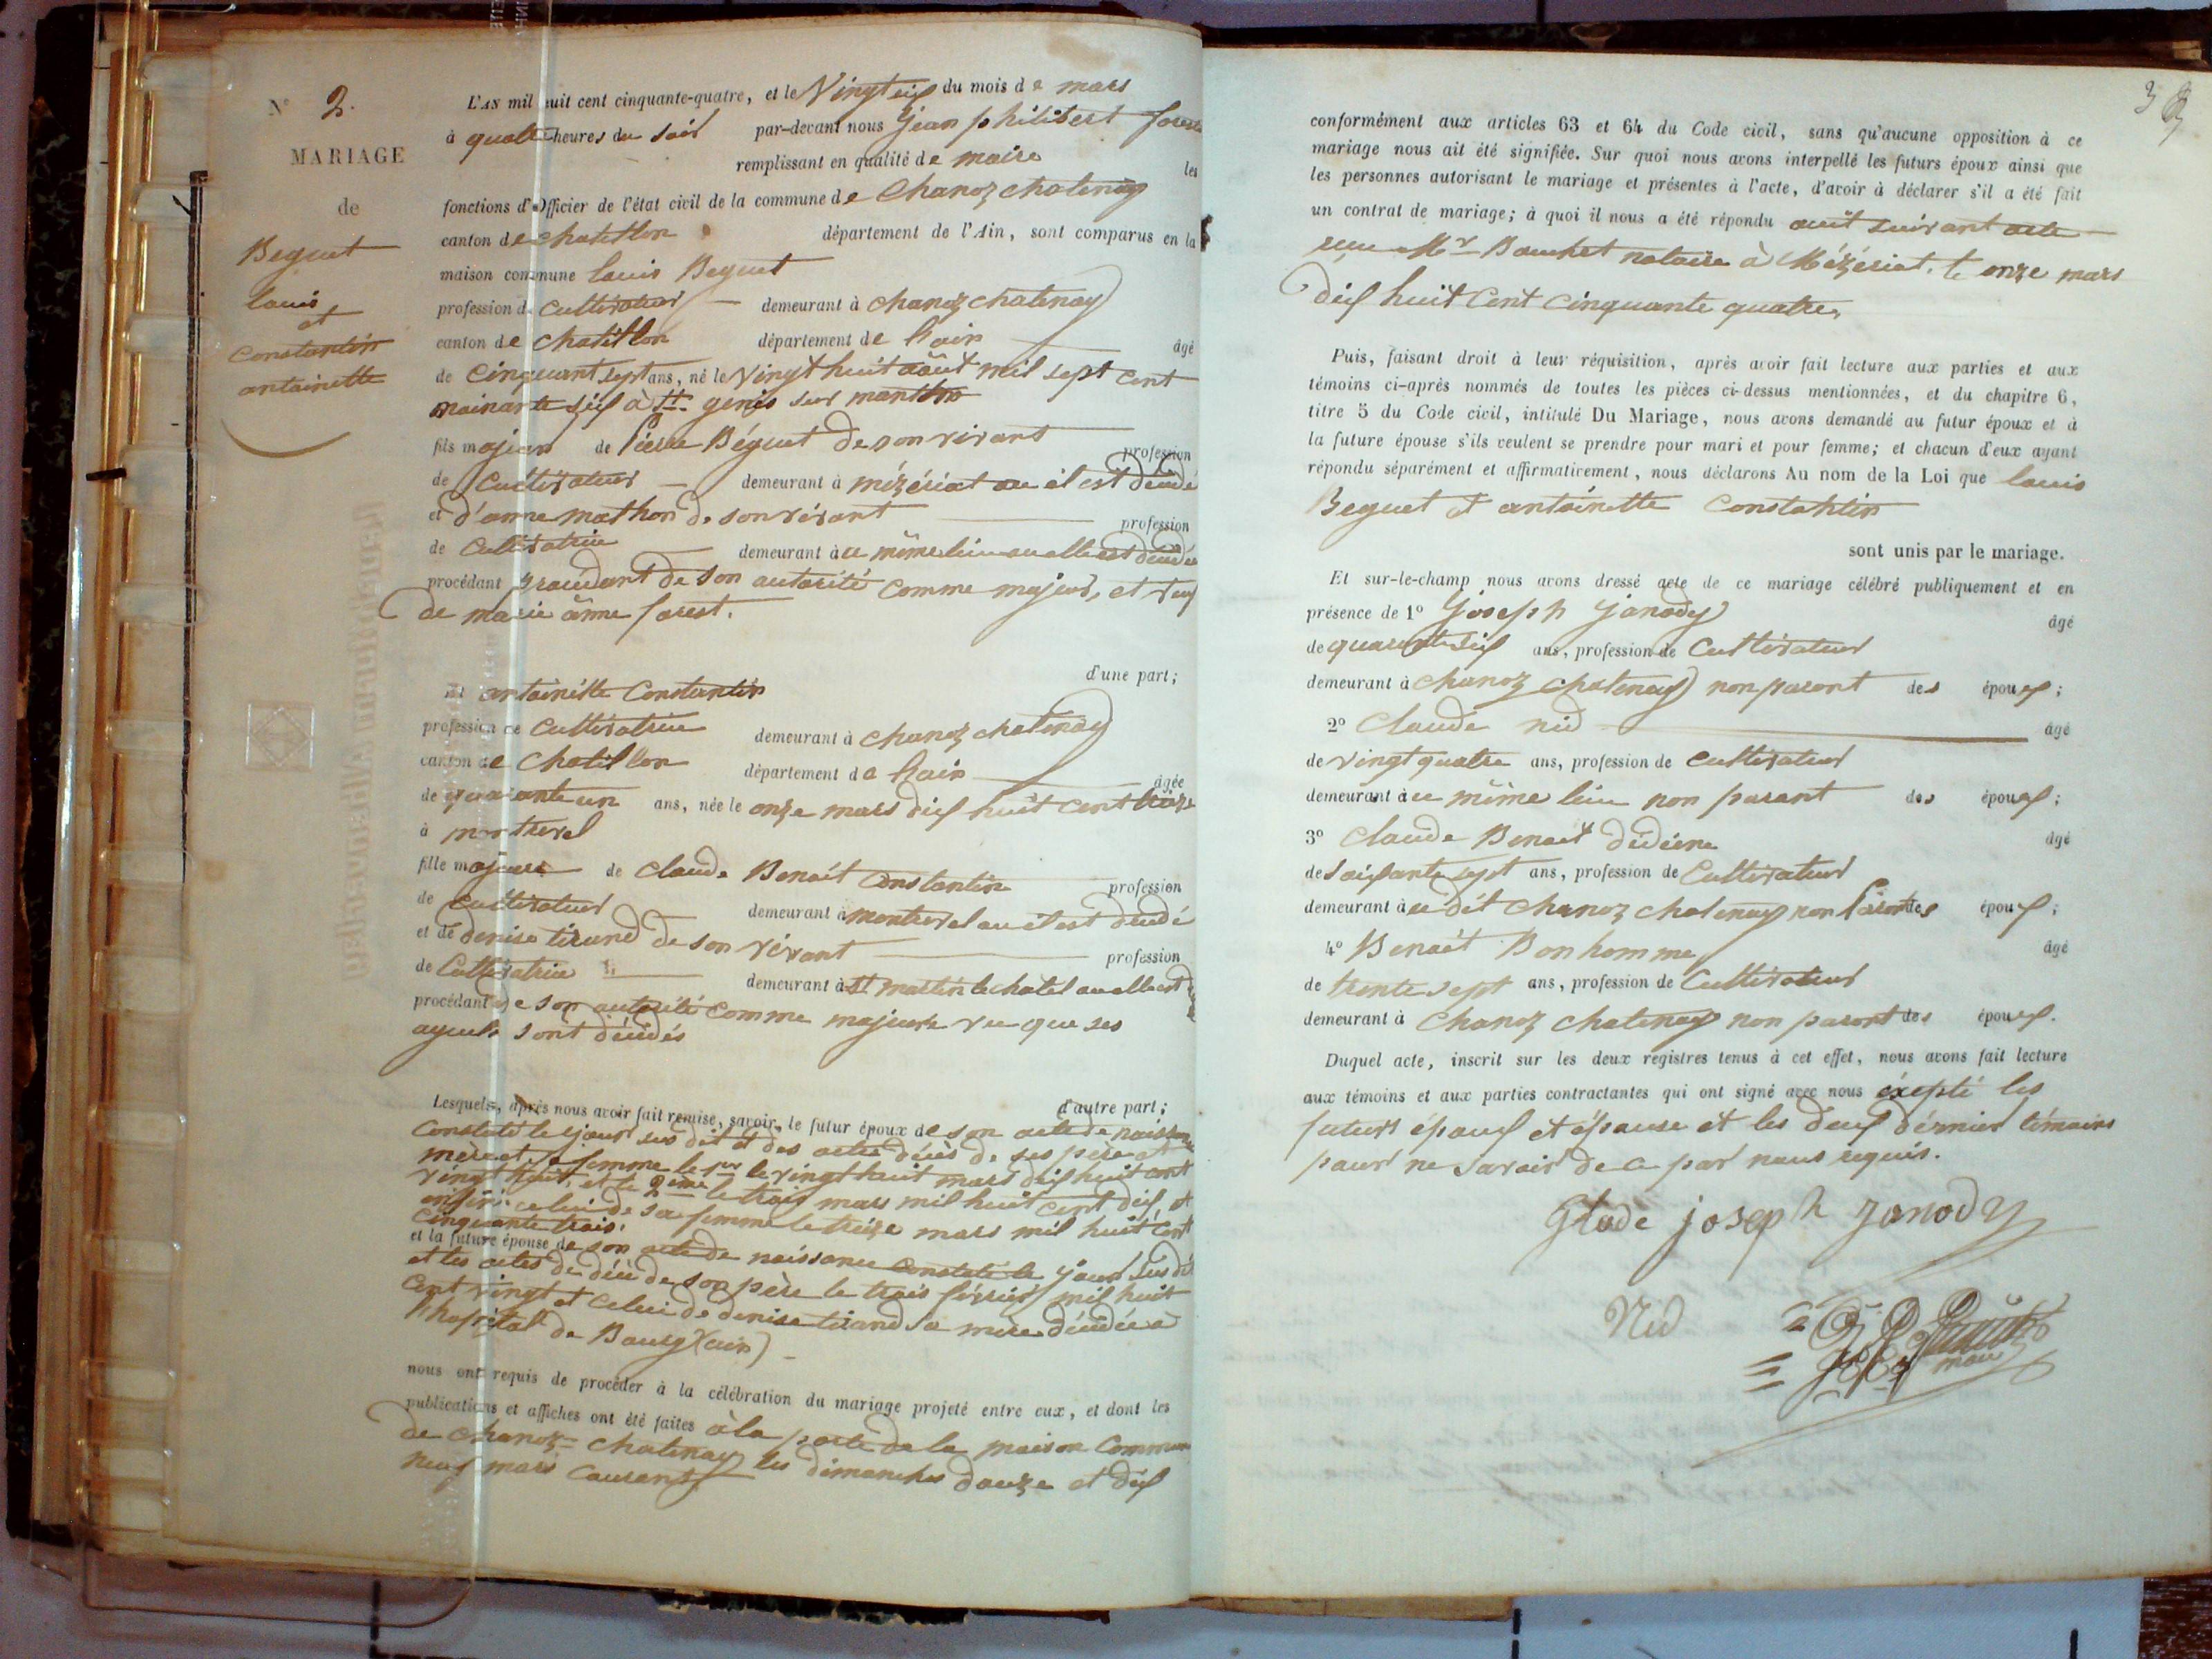 N° 2.
MARIAGE
de
Beguet
louis
et
Constantin
antoinette
L'AN mil huit cent cinquante-quatre, et le Vingt six du mois de mars
à quatre heures du soir par-devant nous jean philibert forest
remplissant en qualité de maire les
fonctions d'Officier de l'état civil de la commune de Chanoz chatenay
canton de chatillon département de l'Ain, sont comparus en la
maison commune louis Beguet
profession de Cultivateur demeurant à chanoz chatenay
canton de chatillon département de l'ain âgé
de cinquant sept ans, né le vingt huit août mil sept cent
nonante six à st. genis sur menthon
fils majeur de pierre Béguet de son vivant profession
de Cultivateur demeurant à mézériat ou il est décidé
et d'anne mathon de son vivant profession
de Cultivatrice demeurant à ce même lieu ou elle est décidée
procédant procédant de son autorité comme majeur, et veuf
de marie ânne forest.
d'une part;
Et antoinette Constantin
profession de Cultivatrice demeurant à chanoz chatenay
canton de Chatillon département de l'ain âgée
de quarante un ans, née le onze mars dix huit cent treize
à montrevel
fille majeure de claude Benoit Constantin profession
de cultivateur demeurant à montrevel ou il est décidé
et de denise tirand de son vivant profession
de Cultivatrice demeurant à st martin le chatel ou elle est
procédant de son autorité comme majeure vu que ses
ayeuls sont décidés
d'autre part;
Lesquels, après nous avoir fait remise, savoir, le futur époux de son acte de naissance
Constaté le jour sus dit et des actes décès de ses père et
mère et sa femme le 1er le vingt huit mars dix huit cent
vingt huit, et le 2ème le trois mars mil huit cent dix, et
enfin celui de sa femme le treize mars mil huit cent
cinquante trois.
et la future épouse de son acte de naissance constaté le jour sus dit
et les actes de décè de son père le trois février mil huit
cent vingt et celui de denise tirand sa mère décidée à
l'hopital de Bourg (ain)
nous ont requis de procéder à la célébration du mariage projeté entre eux, et dont les
publications et affiches ont été faites à la porte de la maison Commune
de chanoz chatenay les dimanches douze et dix
neuf mars courant
3
conformément aux articles 63 et 64 du Code civil, sans qu'aucune opposition à ce
mariage nous ait été signifiée. Sur quoi nous avons interpellé les futurs époux ainsi que
les personnes autorisant le mariage et présentes à l'acte, d'avoir à déclarer s'il a été fait
un contrat de mariage; à quoi il nous a été répondu ouit suivant acte
reçu Mr Bouchet notaire à Mézériat, le onze mars
dix huit Cent cinquante quatre.
Puis, faisant droit à leur réquisition, après avoir fait lecture aux parties et aux
témoins ci-après nommés de toutes les pièces ci-dessus mentionnées, et du chapitre 6,
titre 5 du Code civil, intitulé Du Mariage, nous avons demandé au futur époux et à
la future épouse s'ils veulent se prendre pour mari et pour femme; et chacun d'eux ayant
répondu séparément et affirmativement, nous déclarons Au nom de la Loi que louis
Beguet et antoinette Constantin
sont unis par le mariage.
Et sur-le-champ nous avons dressé acte de ce mariage célébré publiquement et en
présence de 1° Joseph Janody âgé
de quarante six ans, profession de Cultivateur
demeurant à chanoz chatenay non parent des époux;
2° Claude nid âgé
de vingt quatre ans, profession de cultivateur
demeurant à ce même lieu non parent des époux;
3° Claude Benoit dédiene âgé
de soixante sept ans, profession de Cultivateur
demeurant à ce dit chanoz chatenay non parent des époux;
4° Benoit Bonhomme âgé
de trente sept ans, profession de Cultivateur
demeurant à Chanoz chatenay non parent des époux.
Duquel acte, inscrit sur les deux registres tenus à cet effet, nous avons fait lecture
aux témoins et aux parties contractantes qui ont signé avec nous éxepté les
futurs époux et épouse et les deux dérnier témoins
pour ne savoir de ce par nous requis.
joseph Janody
Nid
maire